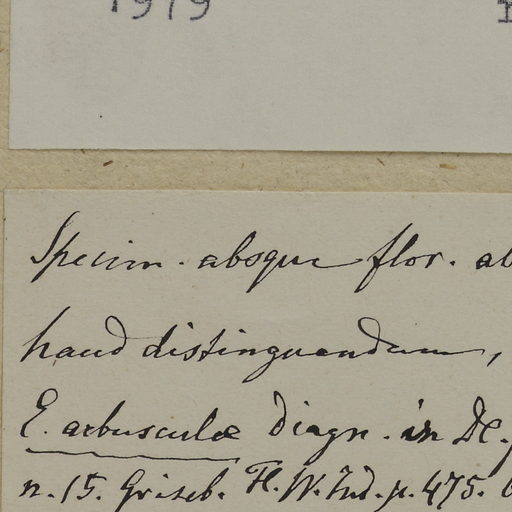 1979
Specim. absque flor. ab
haud distinguendum,
E. arbusculæ diagn. in DC.
n. 15. Griseb. Fl. W. Ind. p. 475.